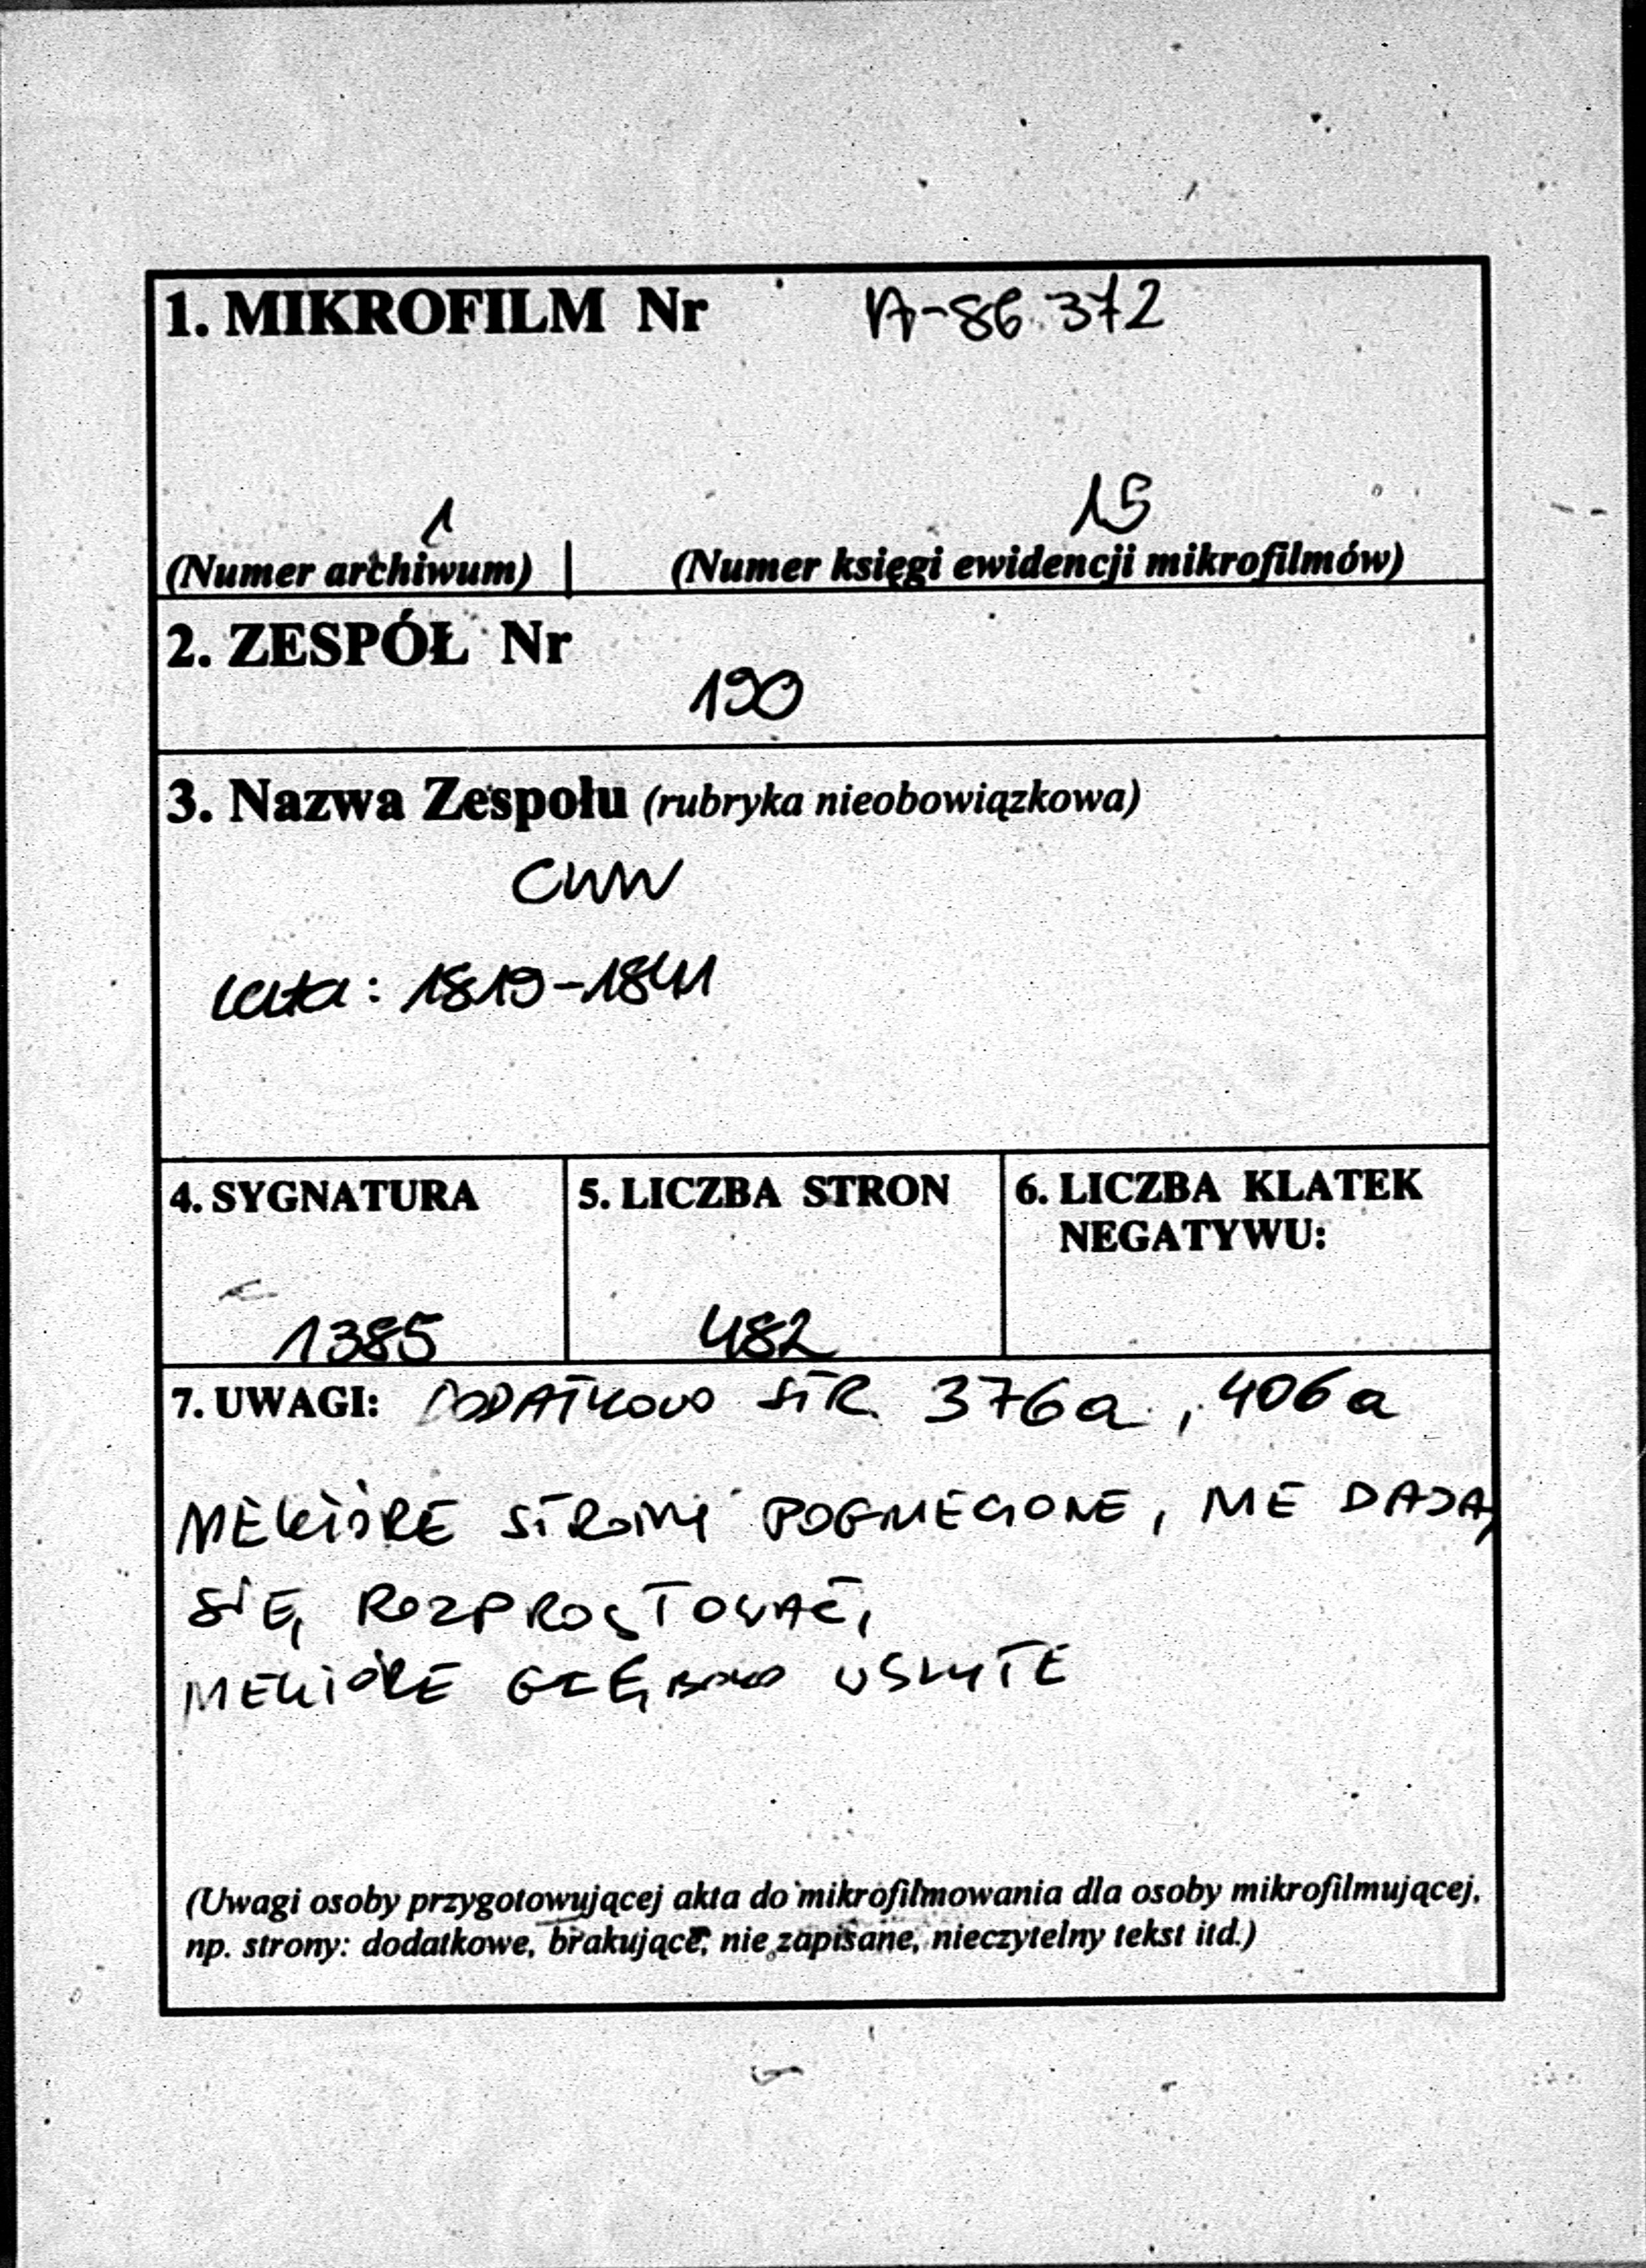 1. MIKROFILM Nr A-86.372
1 15
(Numer archiwum) | (Numer księgi ewidencji mikrofilmów)
2. ZESPÓŁ Nr
190
3. Nazwa Zespołu (rubryka nieobowiązkowa)
CWW
lata: 1819-1841
4. SYGNATURA 5. LICZBA STRON 6. LICZBA KLATEK
NEGATYWU:
1385 482
7. UWAGI: DODATKOWO STR. 376a, 406a
NIEKTÓRE STRONY POGNIECIONE, NIE DAJĄ
SIĘ ROZPROSTOWAĆ,
NIEKTÓRE GŁĘBOKO WSZYTE
(Uwagi osoby przygotowującej akta do mikrofilmowania dla osoby mikrofilmującej,
np. strony: dodatkowe, brakujące, nie zapisane, nieczytelny tekst itd.)